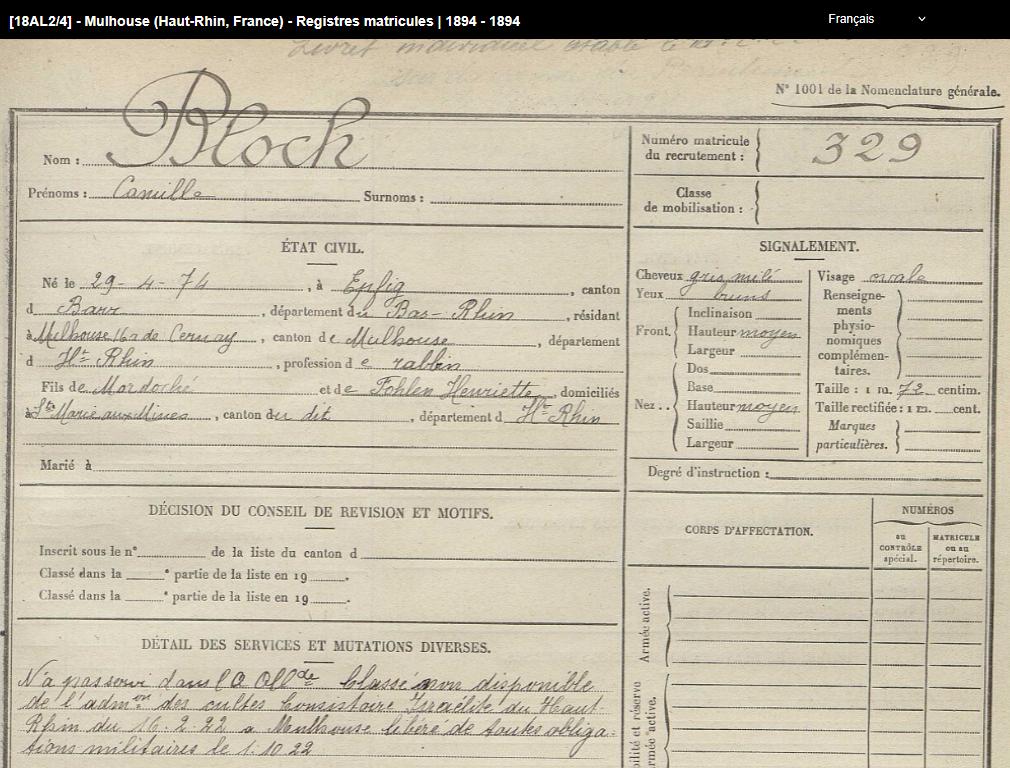 [18AL2/4] - Mulhouse (Haut-Rhin, France) - Registres matricules | 1894 - 1894
Français
Livret individuel établi le
N° 1001 de la Nomenclature générale.
Nom : Bloch
Prénoms : Camille Surnoms :
Numéro matricule du recrutement : 329
Classe de mobilisation :
ÉTAT CIVIL.
Né le 29-4-74, à Epfig, canton
d Barr, département du Bas-Rhin, résidant
à Mulhouse 16 r de Cernay, canton de Mulhouse, département
d Ht Rhin, profession de rabbin
Fils de Mardoché et de Fohlen Henriette, domiciliés
à Ste Marie aux Mines, canton du dit, département d Ht Rhin
Marié à
SIGNALEMENT.
Cheveux gris mêlé
Yeux bruns
Front.
Inclinaison
Hauteur moyen
Largeur
Nez..
Dos
Base
Hauteur moyen
Saillie
Largeur
Visage ovale
Renseigne-
ments
physio-
nomiques
complémen-
taires.
Taille : 1 m. 72 centim.
Taille rectifiée : 1 m. cent.
Marques
particulières.
Degré d'instruction :
DÉCISION DU CONSEIL DE REVISION ET MOTIFS.
Inscrit sous le n° de la liste du canton d
Classé dans la e partie de la liste en 19 .
Classé dans la e partie de la liste en 19 .
CORPS D'AFFECTATION.
NUMÉROS
au
CONTRÔLE
spécial.
MATRICULE
ou au
répertoire.
Armée active.
DÉTAIL DES SERVICES ET MUTATIONS DIVERSES.
N'a pas servi dans l'A Allde Classé non disponible
de l'admon des cultes Consistoire Israélite du Haut-
Rhin du 16.2.22 a Mulhouse libéré de toutes obliga-
tions militaires le 1.10.22
bilité et réserve
armée active.